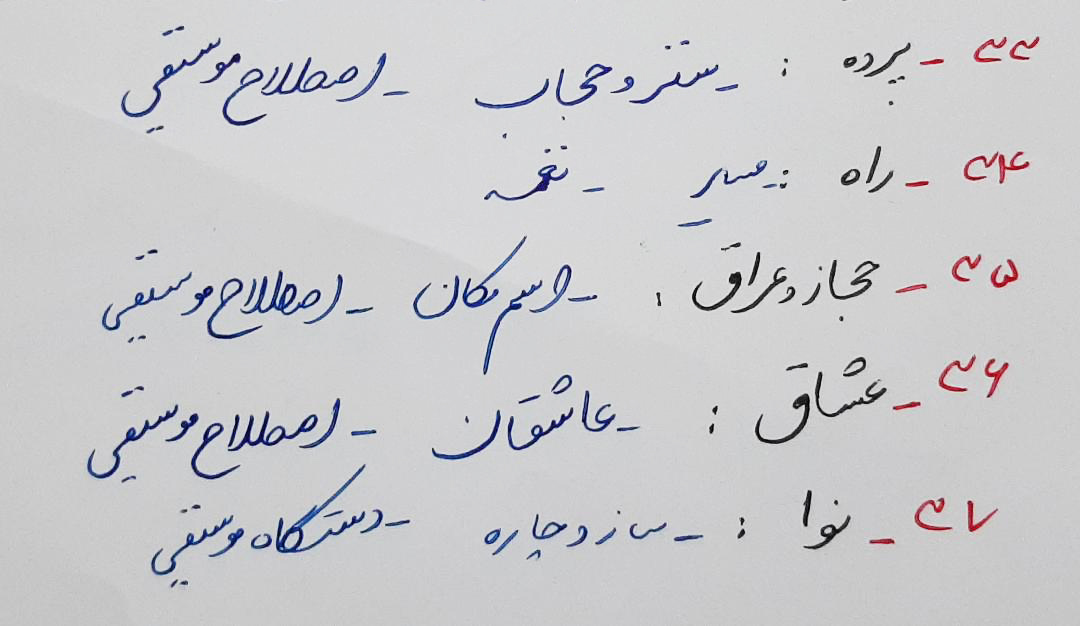 ۳۳ - پرده : - ستر و حجاب - اصطلاح موسیقی
۳۴ - راه : - مسیر - نغمه
۳۵ - حجاز و عراق : - اسم مکان - اصطلاح موسیقی
۳۶ - عشاق : - عاشقان - اصطلاح موسیقی
۳۷ - نوا : - ساز و چاره - دستگاه موسیقی